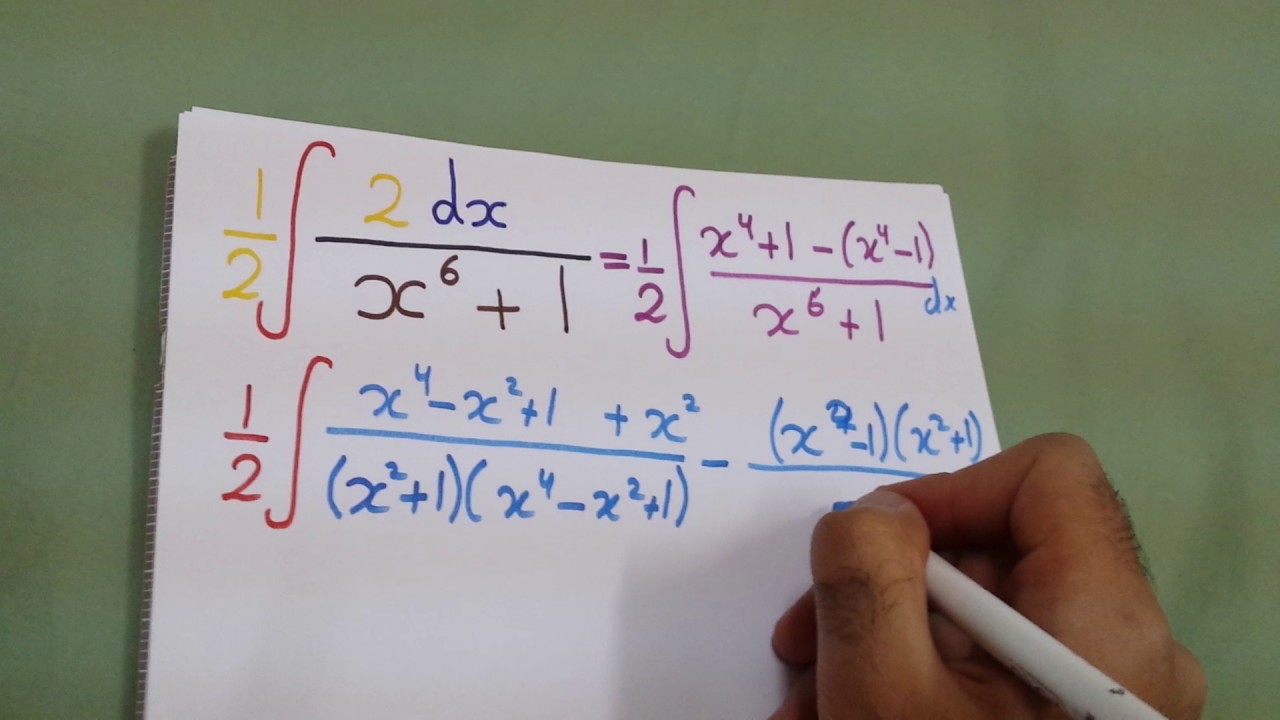 1/2 ∫ 2 dx / x⁶ + 1 = 1/2 ∫ x⁴+1 - (x⁴-1) / x⁶+1 dx
1/2 ∫ x⁴-x²+1 + x² / (x²+1)(x⁴-x²+1) - (x²-1)(x²+1) /